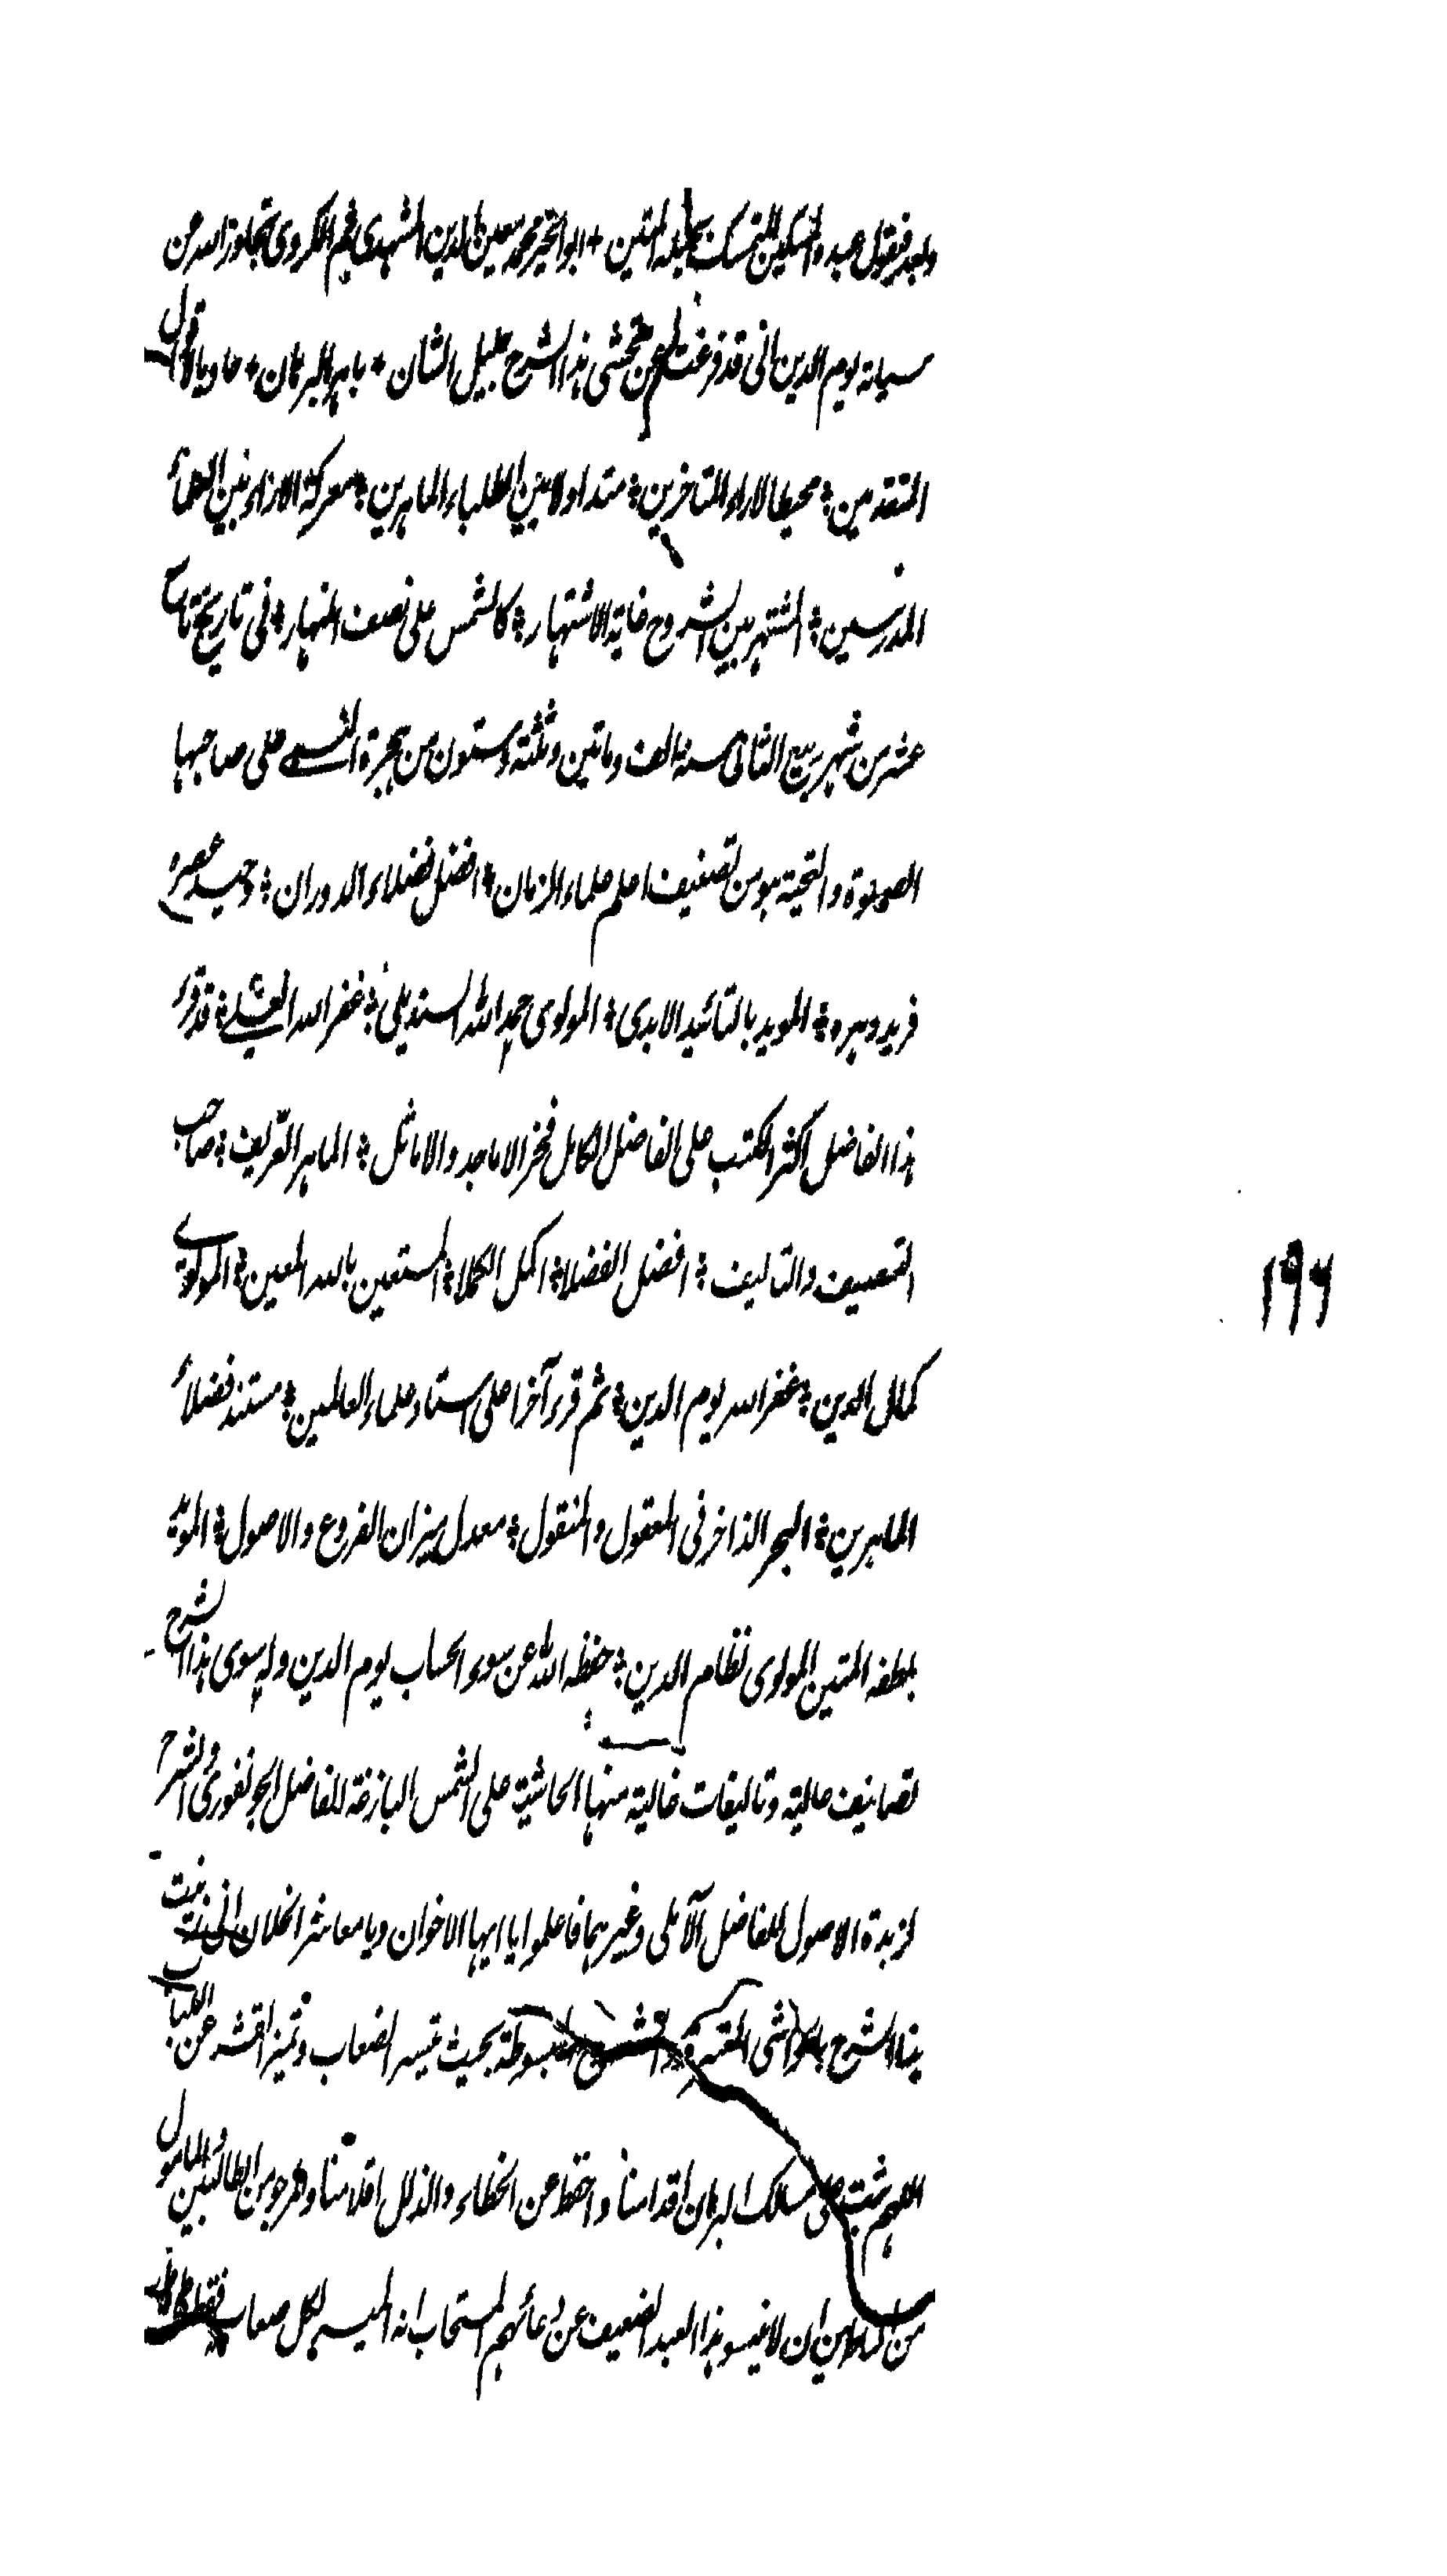 وبعد فيقول عبده المسكين المتمسك بحبله المتين + ابو الخير محمد معين الدين المشهدى ثم الكروى تجاوز الله عن
سياته يوم الدين انى قد فرغت عن تحشى هذا الشرح جليل الشان + باهر البرهان + حاويا لاقوال
المتقدمين ؛ محيطا لاراء المتاخرين ؛ متداولا بين الطلباء الماهرين ؛ معركة الاراء بين
المدرسين ؛ المشتهر بين الشروح غاية الاشتهار ؛ كالشمس على نصف النهار ؛ فى تاريخ
عشر من شهر ربيع الثانى سنة الف وماتين وثلثة وستون من هجرة على صاحبها
الصلوة والتحية هو من تصنيف اعلم علماء الزمان ؛ افضل فضلاء الدوران ؛ وحيد عصره
فريد دهره ؛ المويد بالتائيد الابدى ؛ المولوى حمد الله السنديلى ؛ غفر الله العلى ؛ قد قرء
هذا الفاضل اكثر الكتب على الفاضل الكامل فخر الاماجد والاماثل ؛ الماهر العريف ؛ صاحب
التصنيف والتاليف ؛ افضل الفضلا ؛ اكمل الكملا ؛ المستعين بالله المعين ؛ المولوى
كمال الدين ؛ غفر الله يوم الدين ؛ ثم قرء آخرا على استاد علماء العالمين ؛ مستند فضلاء
الماهرين ؛ البحر الذاخر فى المعقول والمنقول ؛ معدل ميزان الفروع والاصول ؛ المويد
بلطفه المتين المولوى نظام الدين ؛ حفظه الله عن سوء الحساب يوم الدين وله سوى هذا الشرح
تصانيف عالية وتاليفات غالية منها الحاشية على الشمس البازغة للفاضل الجونفورى والشرح
لزبدة الاصول للفاضل الآملى وغيرهما فاعلموا يا ايها الاخوان ويا معاشر الخلان انى زينت
هذا الشرح بالحواشى المعتبرة والشروح المبسوطة بحيث تيسر الصعاب وتميز القشر عن اللباب
اللهم ثبت على مسالك البرهان اقدامنا واحفظ عن الخطاء والذلل اقلامنا والمرجو من الطالبين والمامول
من الكاملين ان لا ينسوا هذا العبد الضعيف عن دعائهم المستجاب انه الميسر لكل صعاب فقط
۱۹۶